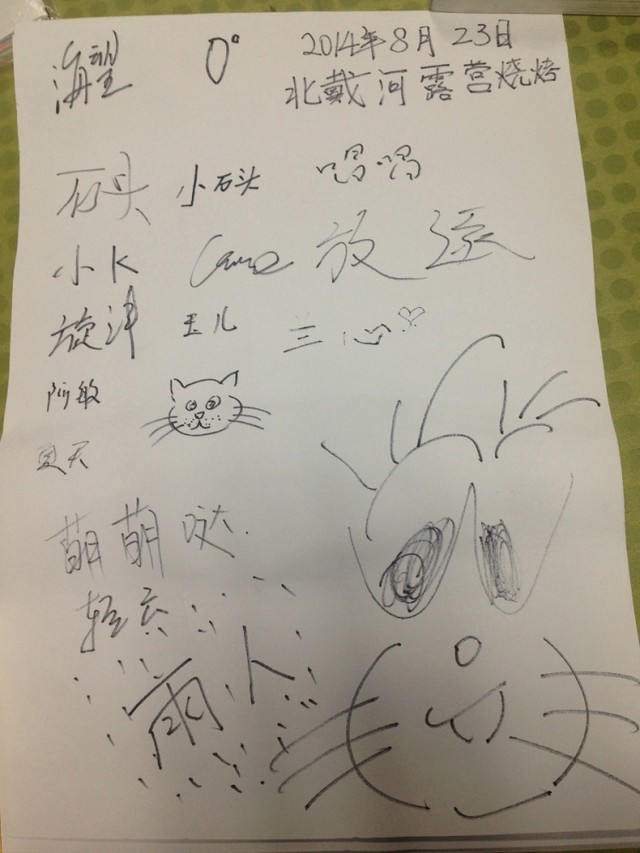 海望 0° 2014年8月23日
北戴河露营烧烤
石头 小石头 唱唱
小K 放逐
旋律 玉儿 兰心
阿敏
昊天
萌萌哒
轻云
雨人